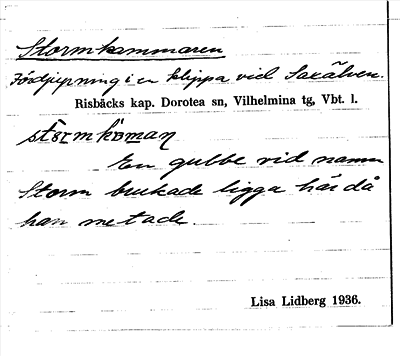 Stormkammaren
Fördjupning i en klippa vid Saxälven.
Risbäcks kap. Dorotea sn, Vilhelmina tg, Vbt. l.
En gubbe vid namn
Storm brukade ligga här då
han metade.
Lisa Lidberg 1936.